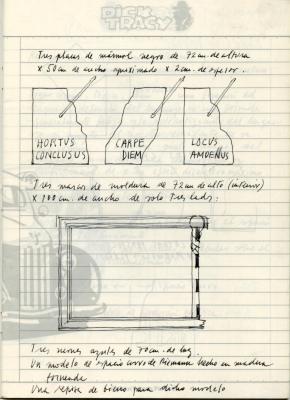 DICK TRACY
Tres placas de mármol negro de 72 cm. de altura
x 50 cm. de ancho aproximado x 2 cm. de espesor.
HORTUS CARPE LOCUS
CONCLUSUS DIEM AMOENUS
Tres marcos de moldura de 72 cm. de alto (interior)
x 100 cm. de ancho de solo tres lados:
Tres neones azules de 70 cm. de luz.
Un modelo de espacio curvo de Riemann hecho en madera
torneada
Una repisa de hierro para dicho modelo